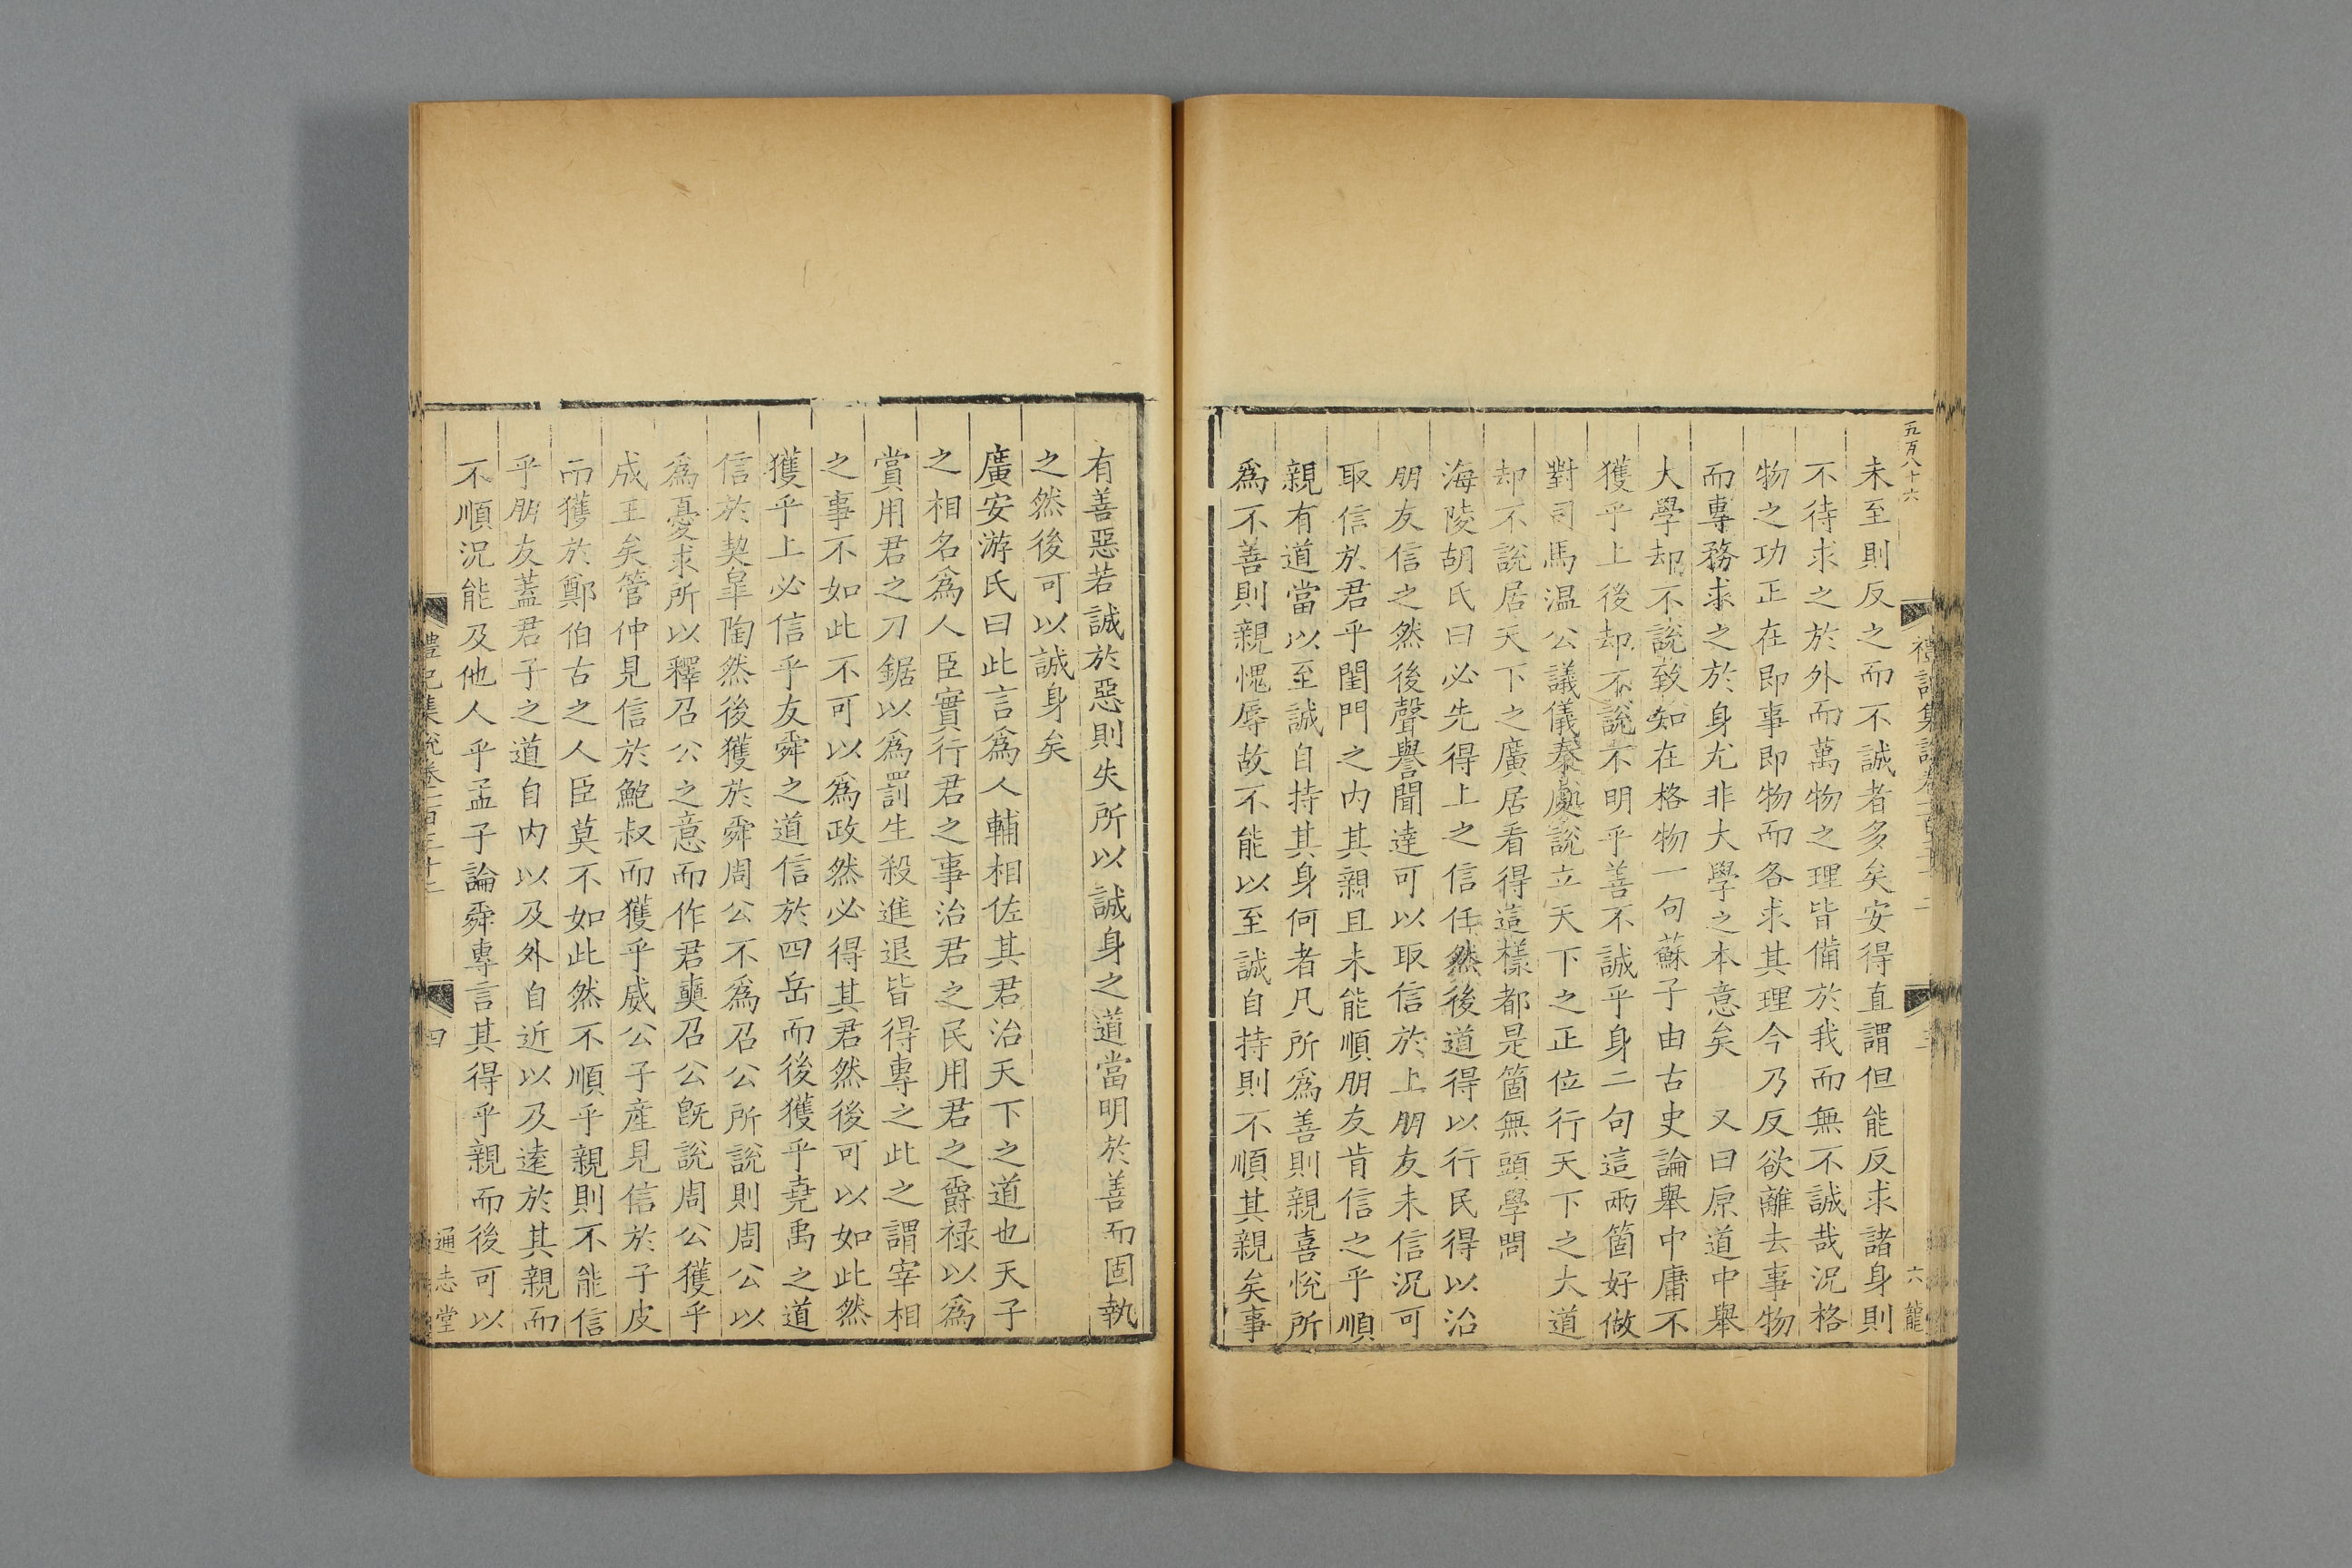 五百八十六
未至則反之而不誠者多矣安得直謂但能反求諸身則
不待求之於外而萬物之理皆備於我而無不誠哉況格
物之功正在即事即物而各求其理今乃反欲離去事物
而專務求之於身尤非大學之本意矣　又曰原道中舉
大學却不說致知在格物一句蘇子由古史論舉中庸不
獲乎上後却不說不明乎善不誠乎身二句這兩箇好做
對司馬温公議儀秦處說立天下之正位行天下之大道
却不說居天下之廣居看得這樣都是箇無頭學問
海陵胡氏曰必先得上之信任然後道得以行民得以治
朋友信之然後聲譽聞達可以取信於上朋友未信況可
取信於君乎閨門之内其親且未能順朋友肯信之乎順
親有道當以至誠自持其身何者凡所爲善則親喜悅所
爲不善則親愧辱故不能以至誠自持則不順其親矣事
有善惡若誠於惡則失所以誠身之道當明於善而固執
之然後可以誠身矣
廣安游氏曰此言爲人輔相佐其君治天下之道也天子
之相名爲人臣實行君之事治君之民用君之爵禄以爲
賞用君之刀鋸以爲罰生殺進退皆得專之此之謂宰相
之事不如此不可以爲政然必得其君然後可以如此然
獲乎上必信乎友舜之道信於四岳而後獲乎堯禹之道
信於契皐陶然後獲於舜周公不爲召公所說則周公以
爲憂求所以釋召公之意而作君奭召公旣說周公獲乎
成王矣管仲見信於鮑叔而獲乎威公子產見信於子皮
而獲於鄭伯古之人臣莫不如此然不順乎親則不能信
乎朋友蓋君子之道自内以及外自近以及逺於其親而
不順況能及他人乎孟子論舜專言其得乎親而後可以
禮記集說卷一百三十二
四
通志堂